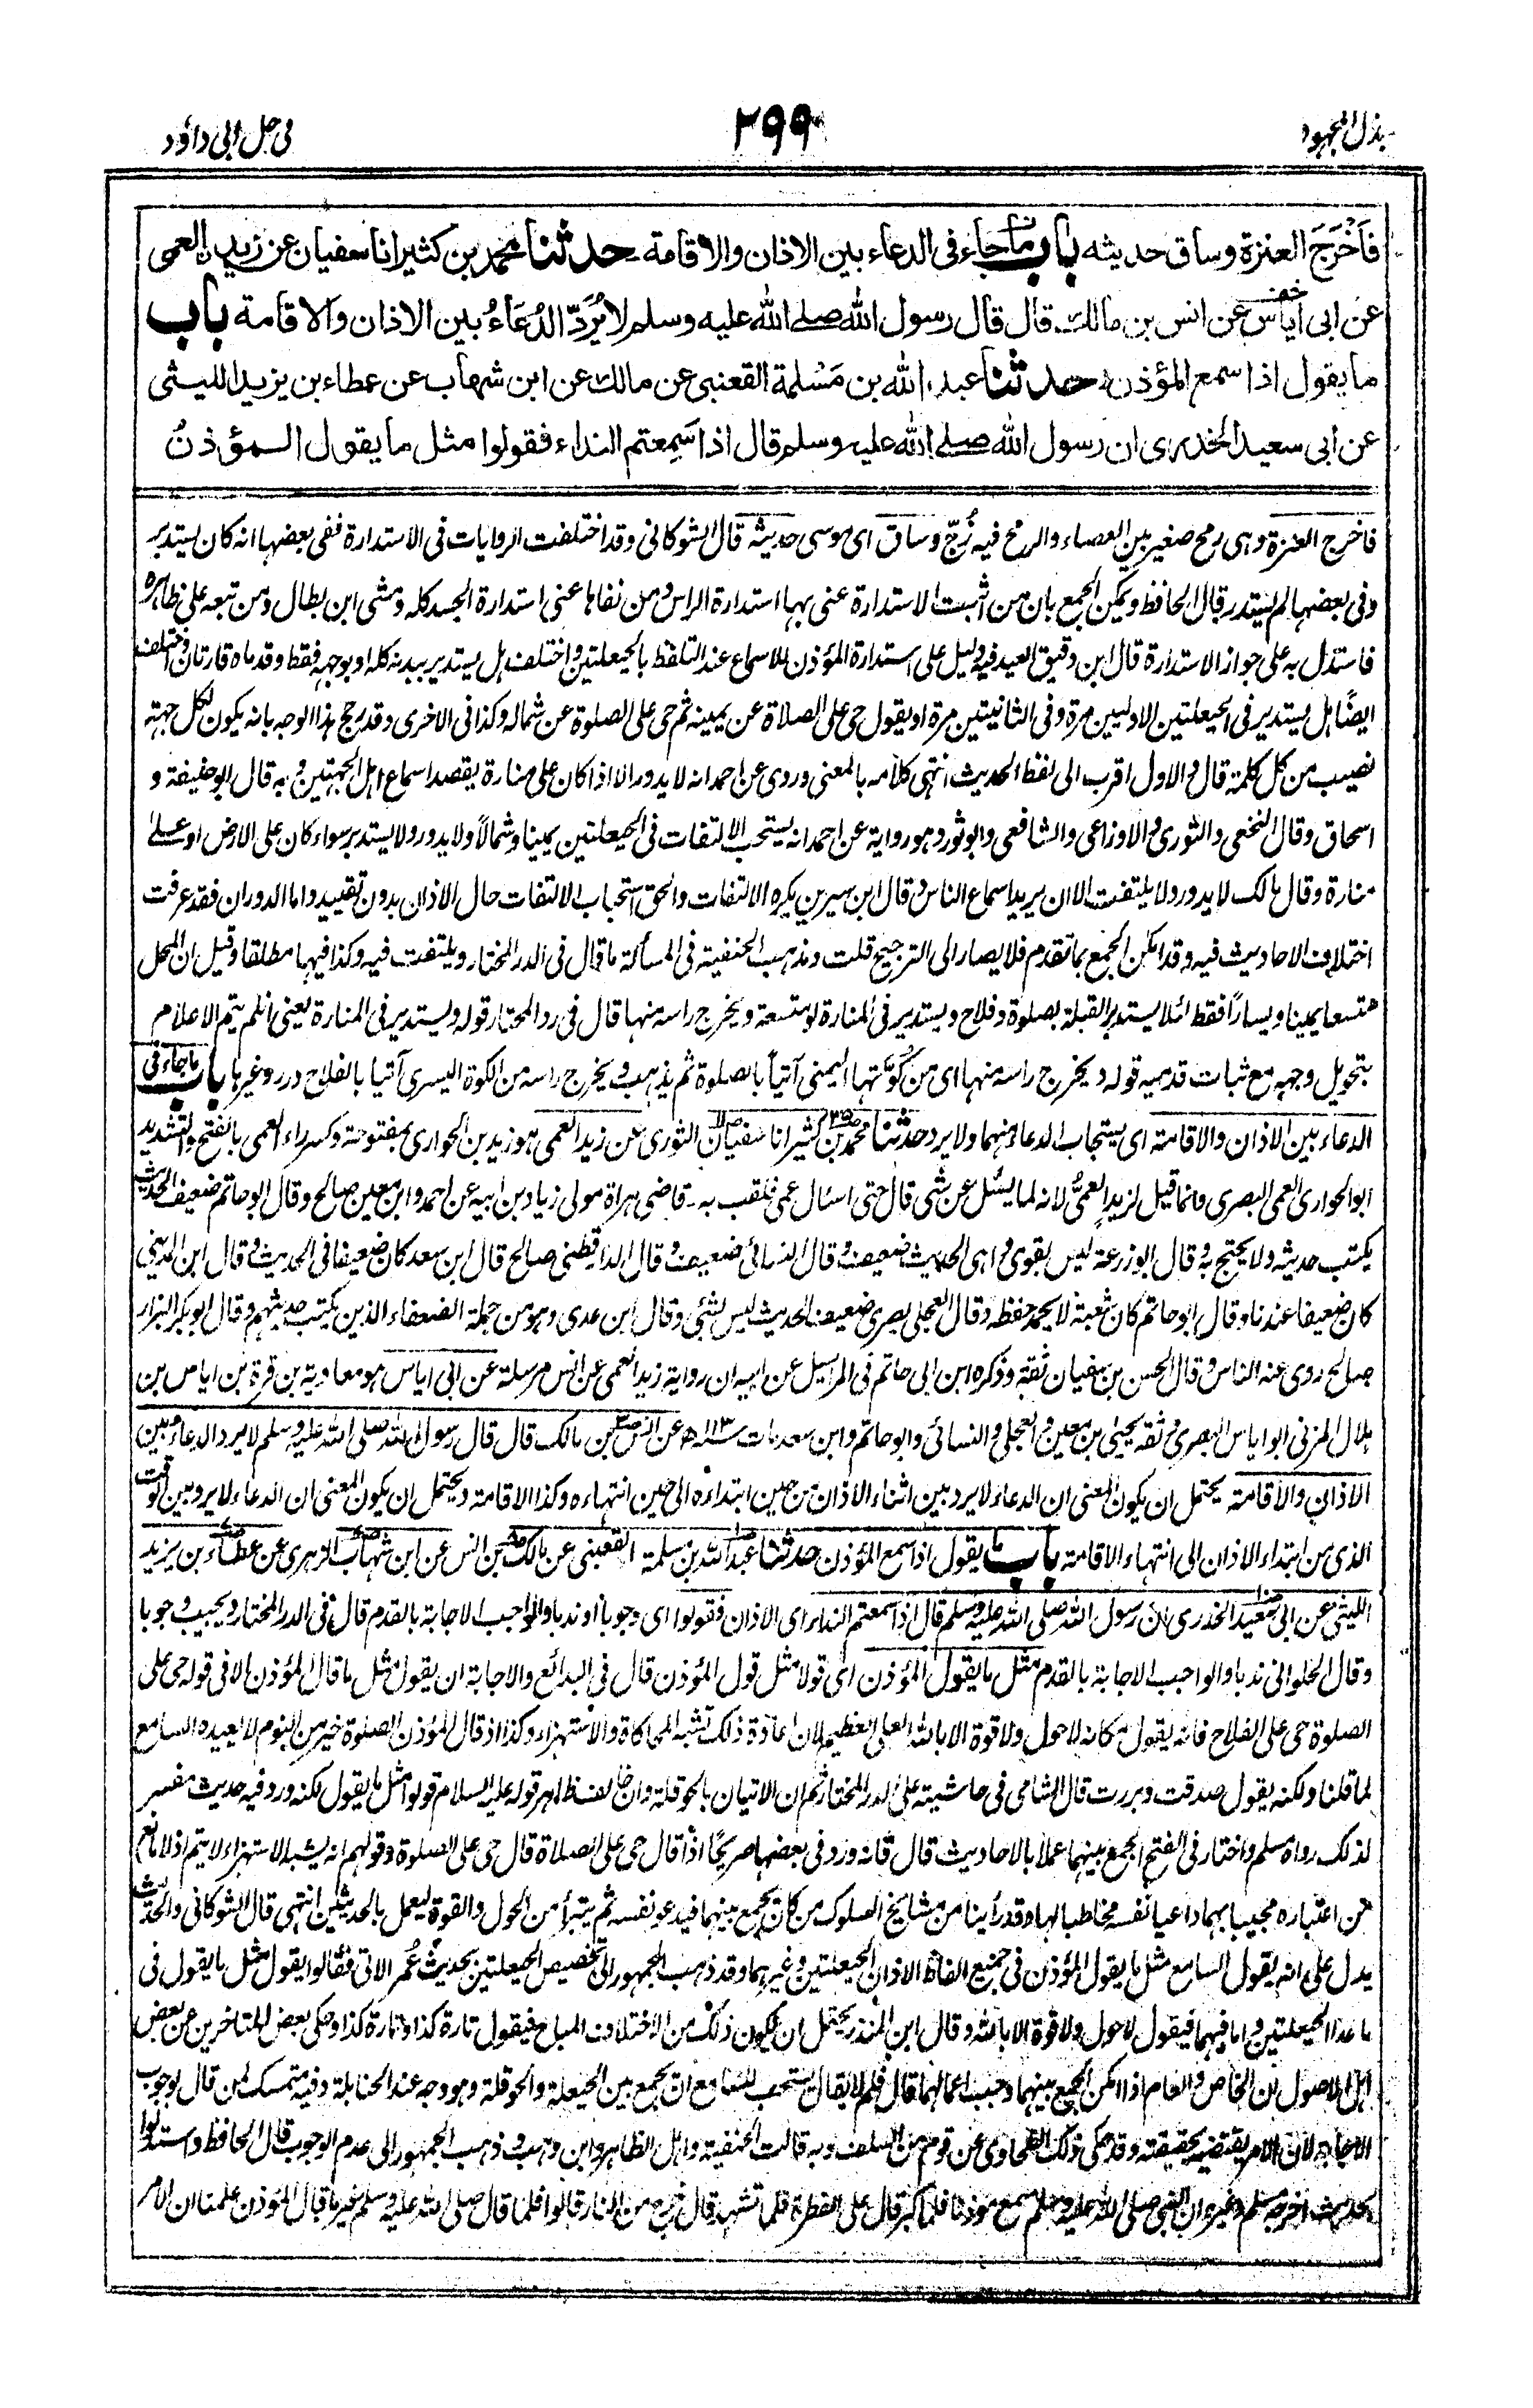 بذل المجهود
٢٩٩
فى حل ابى داؤد
فَأَخْرَجَ العنزة وساق حديثه باب ما جاء فى الدعاء بين الاذان والاقامة حدثنا محمد بن كثير انا سفيان عن زيد العمى
عن ابى اياس عن انس بن مالك قال قال رسول الله صلى الله عليه وسلم لا يُرَدّ الدُعَاءُ بين الاذان والاقامة باب
ما يقول اذا سمع المؤذن حدثنا عبد الله بن مَسْلمة القعنبى عن مالك عن ابن شهاب عن عطاء بن يزيد الليثى
عن ابى سعيد الخدرى ان رسول الله صلى الله عليه وسلم قال اذا سَمِعتم النداء فقولوا مثل ما يقول المؤذنُ
فاخرج العنزة وهى رمح صغير بين العصاء والرمح فيه زُجّ وساق اى موسى حديثه قال الشوكانى وقد اختلفت الروايات فى الاستدارة ففى بعضها انه كان يستدير
وفى بعضها لم يستدر قال الحافظ ويمكن الجمع بان من اثبت الاستدارة عنى بها استدارة الراس ومن نفاها عنى استدارة الجسد كله ومشى ابن بطال ومن تبعه على ظاهره
فاستدل به على جواز الاستدارة قال ابن دقيق العيد فيه دليل على استدارة المؤذن للاسماع عند التلفظ بالحيعلتين واختلف هل يستدير ببدنه كله او بوجهه فقط وقدماه قارتان واختلف
ايضًا هل يستدير فى الحيعلتين الاوليين مرة وفى الثانيتين مرة او يقول حى على الصلاة عن يمينه ثم حى على الصلوة عن شماله وكذا فى الاخرى وقد رجح هذا الوجه بانه يكون لكل جهة
نصيب من كل كلمة قال والاول اقرب الى لفظ الحديث انتهى كلامه بالمعنى وروى عن احمد انه لا يدور الا اذا كان على منارة يقصد اسماع اهل الجهتين وبه قال ابو حنيفة و
اسحاق وقال النخعى والثورى والاوزاعى والشافعى وابو ثور وهو رواية عن احمد انه يستحب الالتفات فى الحيعلتين يمينا وشمالاً ولا يدور ولا يستدبر سواء كان على الارض او على
منارة وقال مالك لا يدور ولا يلتفت الا ان يريد اسماع الناس وقال ابن سيرين يكره الالتفات والحق استحباب الالتفات حال الاذان بدون تقييد واما الدوران فقد عرفت
اختلاف الاحاديث فيه وقد امكن الجمع بما تقدم فلا يصار الى الترجيح قلت ومذهب الحنفية فى المسألة ما قال فى الدر المختار ويلتفت فيه وكذا فيها مطلقا وقيل ان المحل
متسعا يمينا ويساراً فقط لئلا يستدبر القبلة بصلوة وفلاح ويستدير فى المنارة لو متسعة ويخرج راسه منها قال فى رد المحتار قوله ويستدير فى المنارة يعنى ان لم يتم الاعلام
بتحويل وجهه مع ثبات قدميه قوله ويخرج راسه منها اى من كُوَّتها اليمنى آتياً بالصلوة ثم يذهب ويخرج راسه من الكوة اليسرى آتيا بالفلاح درر وغيرها باب ما جاء فى
الدعاء بين الاذان والاقامة اى يستجاب الدعاء بينهما ولا يرد حدثنا محمد بن كثير انا سفيان الثورى عن زيد العمى هو زيد بن الحوارى بمفتوحة وكسر راء العمى بالفتح والتشديد
ابو الحوارى العمى البصرى وانما قيل لزيد العمىُّ لانه لما يسئل عن شئ قال حتى اسئال عمى فلقب به - قاضى هراة مولى زياد بن ابيه عن احمد وابن معين صالح وقال ابو حاتم ضعيف الحديث
يكتب حديثه ولا يحتج به وقال ابو زرعة ليس بقوى واهى الحديث ضعيف وقال النسائى ضعيف وقال الدارقطنى صالح قال ابن سعد كان ضعيفا فى الحديث وقال ابن المدينى
كان ضعيفا عندنا وقال ابو حاتم كان شعبة لا يحمد حفظه وقال العجلى بصرى ضعيف الحديث ليس بشئ وقال ابن عدى وهو من جملة الضعفاء الذين يكتب حديثهم وقال ابو بكر البزار
صالح روى عنه الناس وقال الحسن بن سفيان ثقة وذكره ابن ابى حاتم فى المراسيل عن ابيه ان رواية زيد العمى عن انس مرسلة عن ابى اياس هو معاوية بن قرة بن اياس بن
هلال المزنى ابو اياس البصرى وثقه يحيى بن معين والعجلى والنسائى وابو حاتم وابن سعد مات سنة ١١٣ھ عن انس بن مالك قال قال رسول الله صلى الله عليه وسلم لا يرد الدعاء بين
الاذان والاقامة يحتمل ان يكون المعنى ان الدعاء لا يرد بين اثناء الاذان من حين ابتداءه الى حين انتهاءه وكذا الاقامة ويحتمل ان يكون المعنى ان الدعاء لا يرد بين الوقت
الذى من ابتداء الاذان الى انتهاء الاقامة باب ما يقول اذا سمع المؤذن حدثنا عبد الله بن مسلمة القعنبى عن مالك بن انس عن ابن شهاب الزهرى عن عطاء بن يزيد
الليثى عن ابى سعيد الخدرى ان رسول الله صلى الله عليه وسلم قال اذا سمعتم النداء اى الاذان فقولوا اى وجوبا او ندبا والواجب الاجابة بالقدم قال فى الدر المختار ويجيب وجوبا
وقال الحلوانى ندبا والواجب الاجابة بالقدم مثل ما يقول المؤذن اى قولا مثل قول المؤذن قال فى البدائع والاجابة ان يقول مثل ما قال المؤذن الا فى قوله حى على
الصلوة حى على الفلاح فانه يقول مكانه لا حول ولا قوة الا بالله العلى العظيم لان اعادة ذلك تشبه المحاكاة والاستهزاء وكذا اذ قال المؤذن الصلوة خير من النوم لا يعيده السامع
لما قلنا ولكنه يقول صدقت وبررت قال الشامى فى حاشيته على الدر المختار ثم ان الاتيان بالحوقلة وان خالف ظاهر قوله عليه السلام قولوا مثل ما يقول لكنه ورد فيه حديث مفسر
لذلك رواه مسلم واختار فى الفتح الجمع بينهما عملا بالاحاديث قال فانه ورد فى بعضها صريحًا اذا قال حى على الصلاة قال حى على الصلوة وقولهم انه يشبه الاستهزاء لا يتم اذ لا مانع
من اعتباره مجيبا بهما داعيا نفسه مخاطبا لها وقد رأينا من مشايخ السلوك من كان يجمع بينهما فيدعو نفسه ثم يتبرأ من الحول والقوة ليعمل بالحديثين انتهى قال الشوكانى والحديث
يدل على انه يقول السامع مثل ما يقول المؤذن فى جميع الفاظ الاذان الحيعلتين وغيرهما وقد ذهب الجمهور الى تخصيص الحيعلتين بحديث عُمر الاتى فقالوا يقول مثل ما يقول فى
ما عدا الحيعلتين واما فيهما فيقول لا حول ولا قوة الا بالله وقال ابن المنذر يحتمل ان يكون ذلك من الاختلاف المباح فيقول تارة كذا وتارة كذا وحكى بعض المتاخرين عن بعض
اهل الاصول ان الخاص والعام اذا امكن الجمع بينهما وجب اعمالهما قال فلم لا يقال يستحب للسامع ان يجمع بين الحيعلة والحوقلة وهو وجه عند الحنابلة وفيه متمسك لمن قال بوجوب
الاجابة لان الامر يقتضيه بحقيقته وقد حكى ذلك الطحاوى عن قوم من السلف وبه قالت الحنفية واهل الظاهر وابن وهب وذهب الجمهور الى عدم الوجوب قال الحافظ واستدلوا
بحديث اخرجه مسلم وغيره ان النبى صلى الله عليه وسلم سمع مؤذنا فلما كبر قال على الفطرة فلما تشهد قال خرج من النار قالوا فلما قال صلى الله عليه وسلم غير ما قال المؤذن علمنا ان الامر